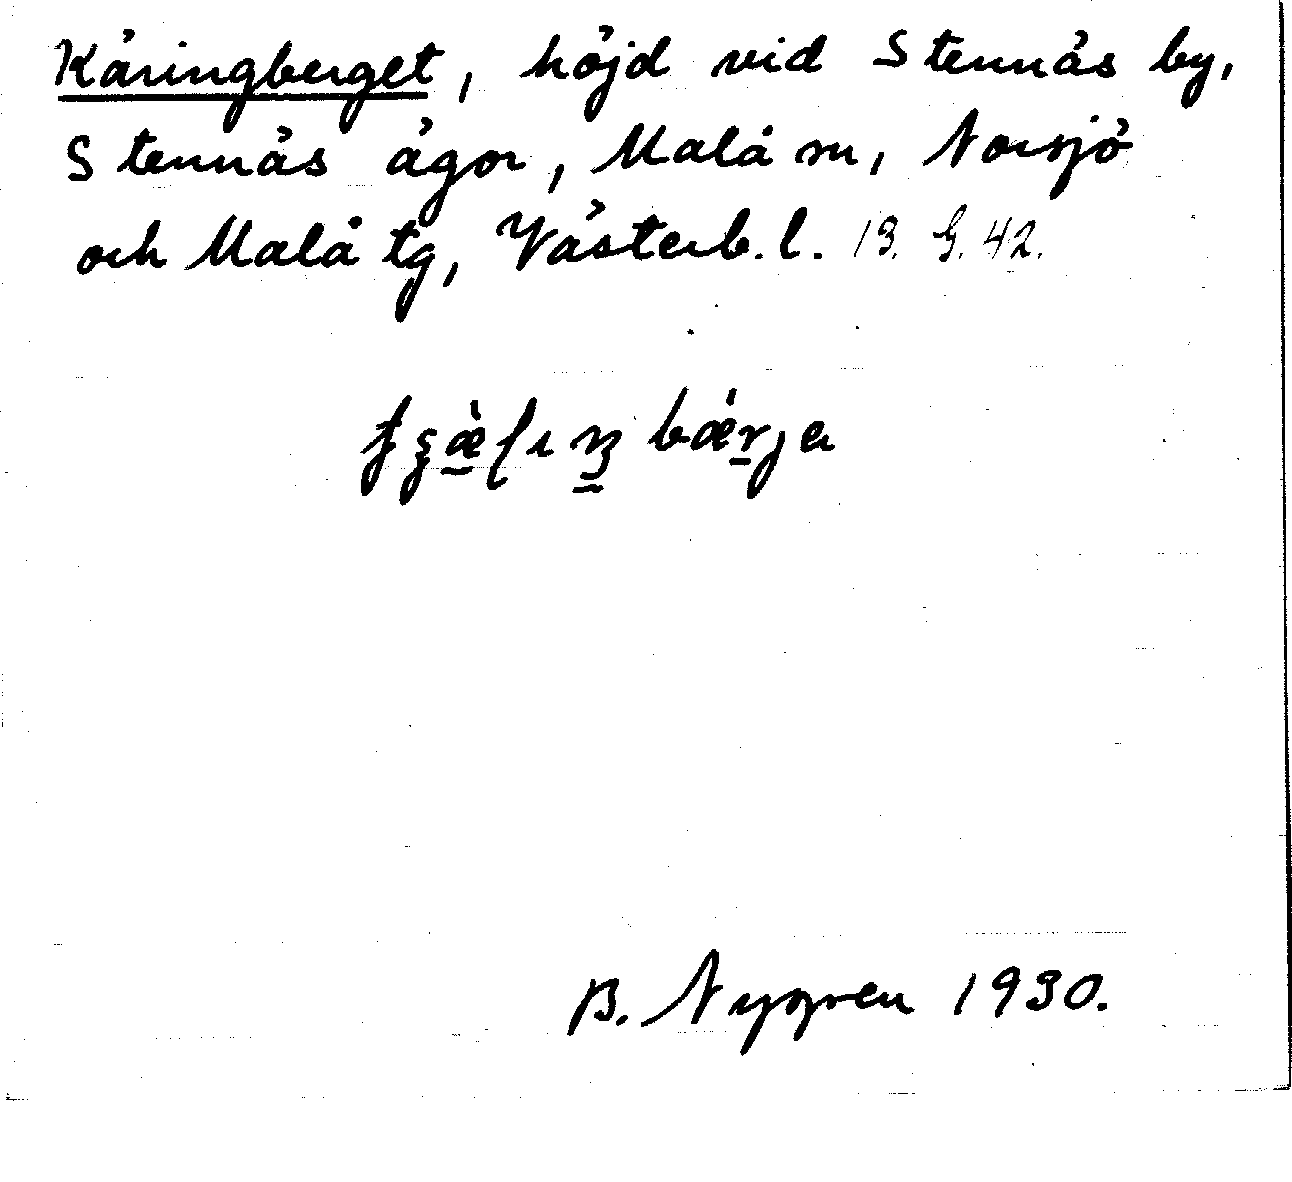 Käringberget, höjd vid Stennäs by,
Stennäs ägor, Malå sn, Norsjö
och Malå tg, Västerb. l. 13. G. 42.
bǽrja
B. Nygren 1930.